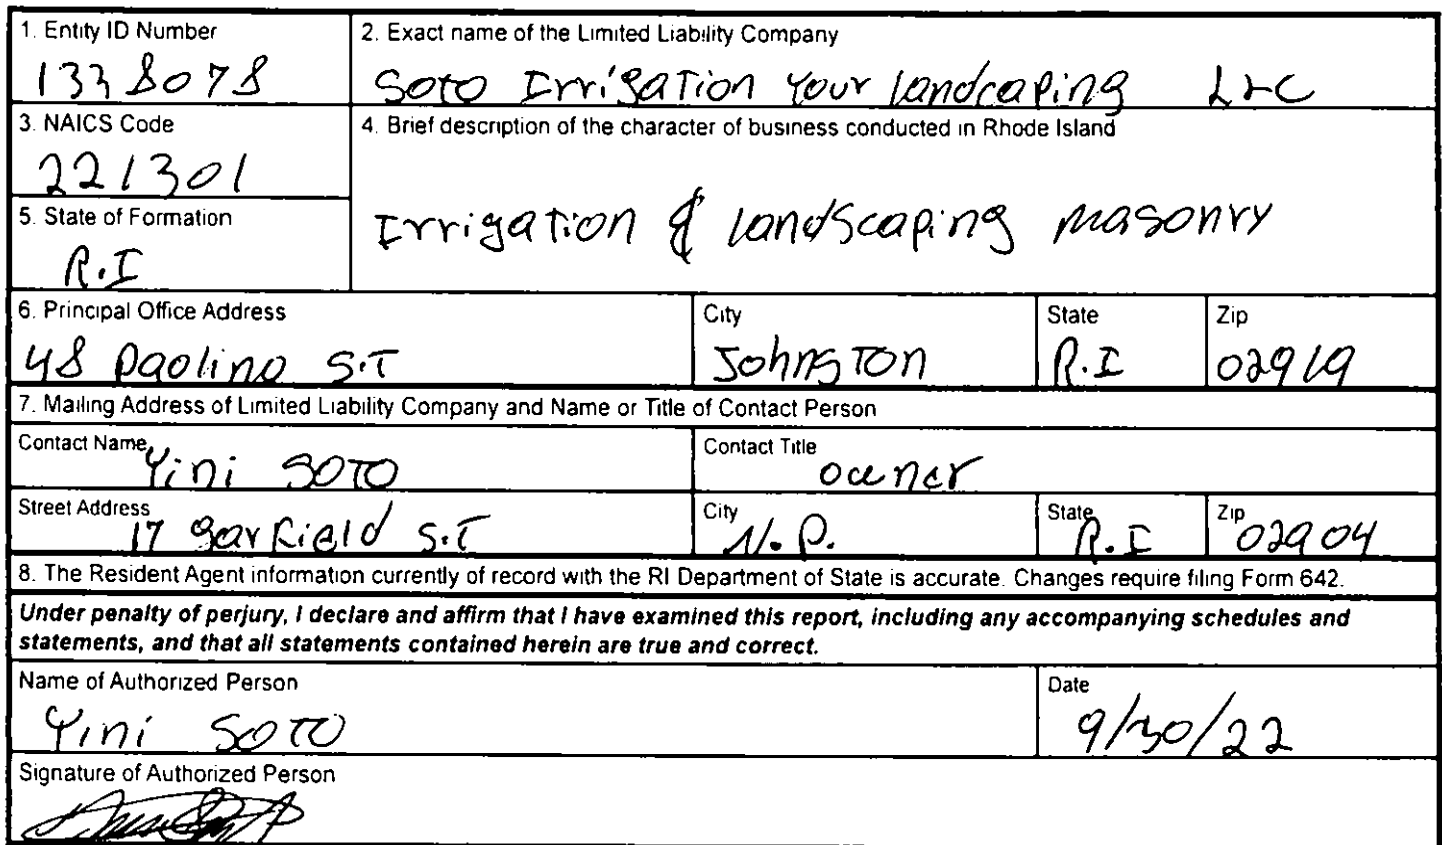 1. Entity ID Number
1338078
2. Exact name of the Limited Liability Company
Soto Irrigation Your landcaping LLC
3. NAICS Code
221301
4. Brief description of the character of business conducted in Rhode Island
Irrigation & landscaping masonry
5. State of Formation
R.I
6. Principal Office Address
48 paolino S.T
City
Johnston
State
R.I
Zip
02919
7. Mailing Address of Limited Liability Company and Name or Title of Contact Person
Contact Name
Yini Soto
Contact Title
owner
Street Address
17 garfield S.T
City
N.P.
State
R.I
Zip
02904
8. The Resident Agent information currently of record with the RI Department of State is accurate. Changes require filing Form 642.
Under penalty of perjury, I declare and affirm that I have examined this report, including any accompanying schedules and
statements, and that all statements contained herein are true and correct.
Name of Authorized Person
Yini Soto
Date
9/30/22
Signature of Authorized Person